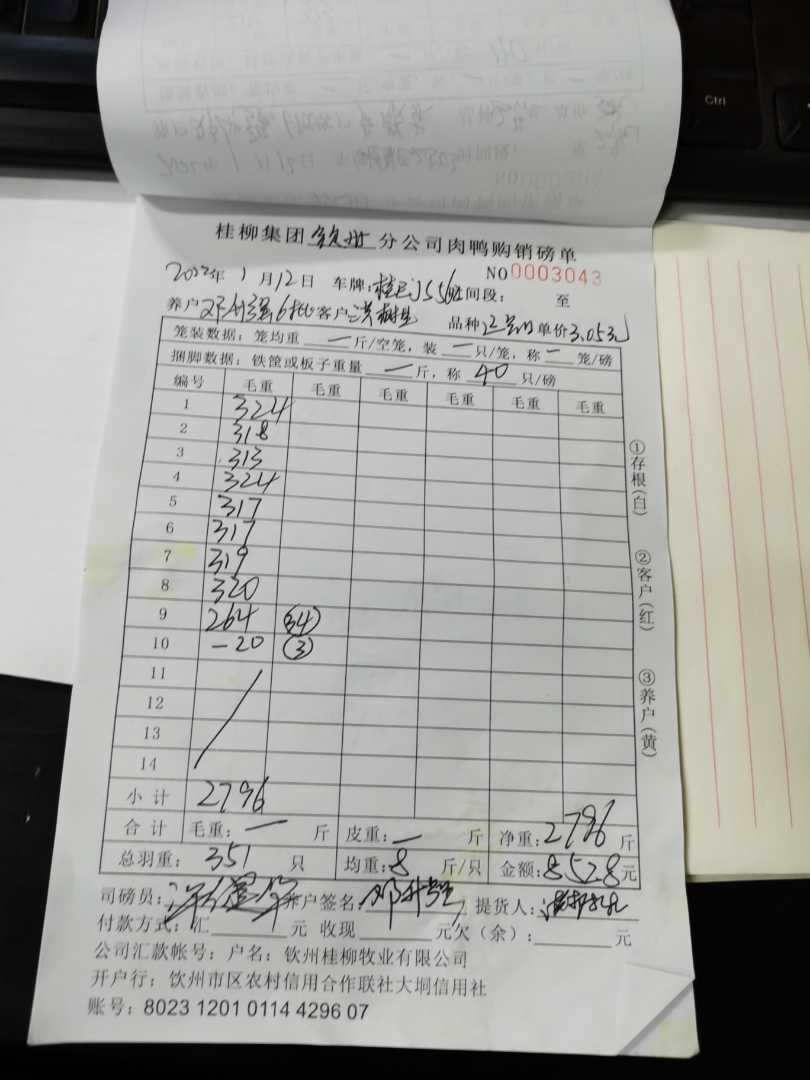 Ctrl
桂柳集团钦州分公司肉鸭购销磅单
NO0003043
2022年1月12日 车牌: 时间段: 至
养户 客户 品种 单价3.05元
笼装数据:笼均重 — 斤/空笼,装 — 只/笼,称 — 笼/磅
捆脚数据:铁筐或板子重量 — 斤,称 40 只/磅
编号 毛重 毛重 毛重 毛重 毛重 毛重
1 324
2 318
3 313
4 324
5 317
6 317
7 319
8 320
9 264 (34)
10 -20 (3)
11
12
13
14
小计 2796
合计 毛重: — 斤 皮重: — 斤 净重:2796斤
总羽重: 351 只 均重:8 斤/只 金额:8528元
司磅员: 养户签名: 提货人:
付款方式:汇 元 收现 元欠(余): 元
公司汇款帐号:户名:钦州桂柳牧业有限公司
开户行:钦州市区农村信用合作联社大垌信用社
账号:8023 1201 0114 4296 07
①存根(白)
②客户(红)
③养户(黄)